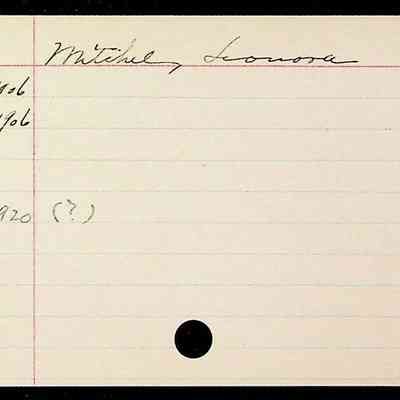 Mitchel, Leonora
906
1906
920 (?)